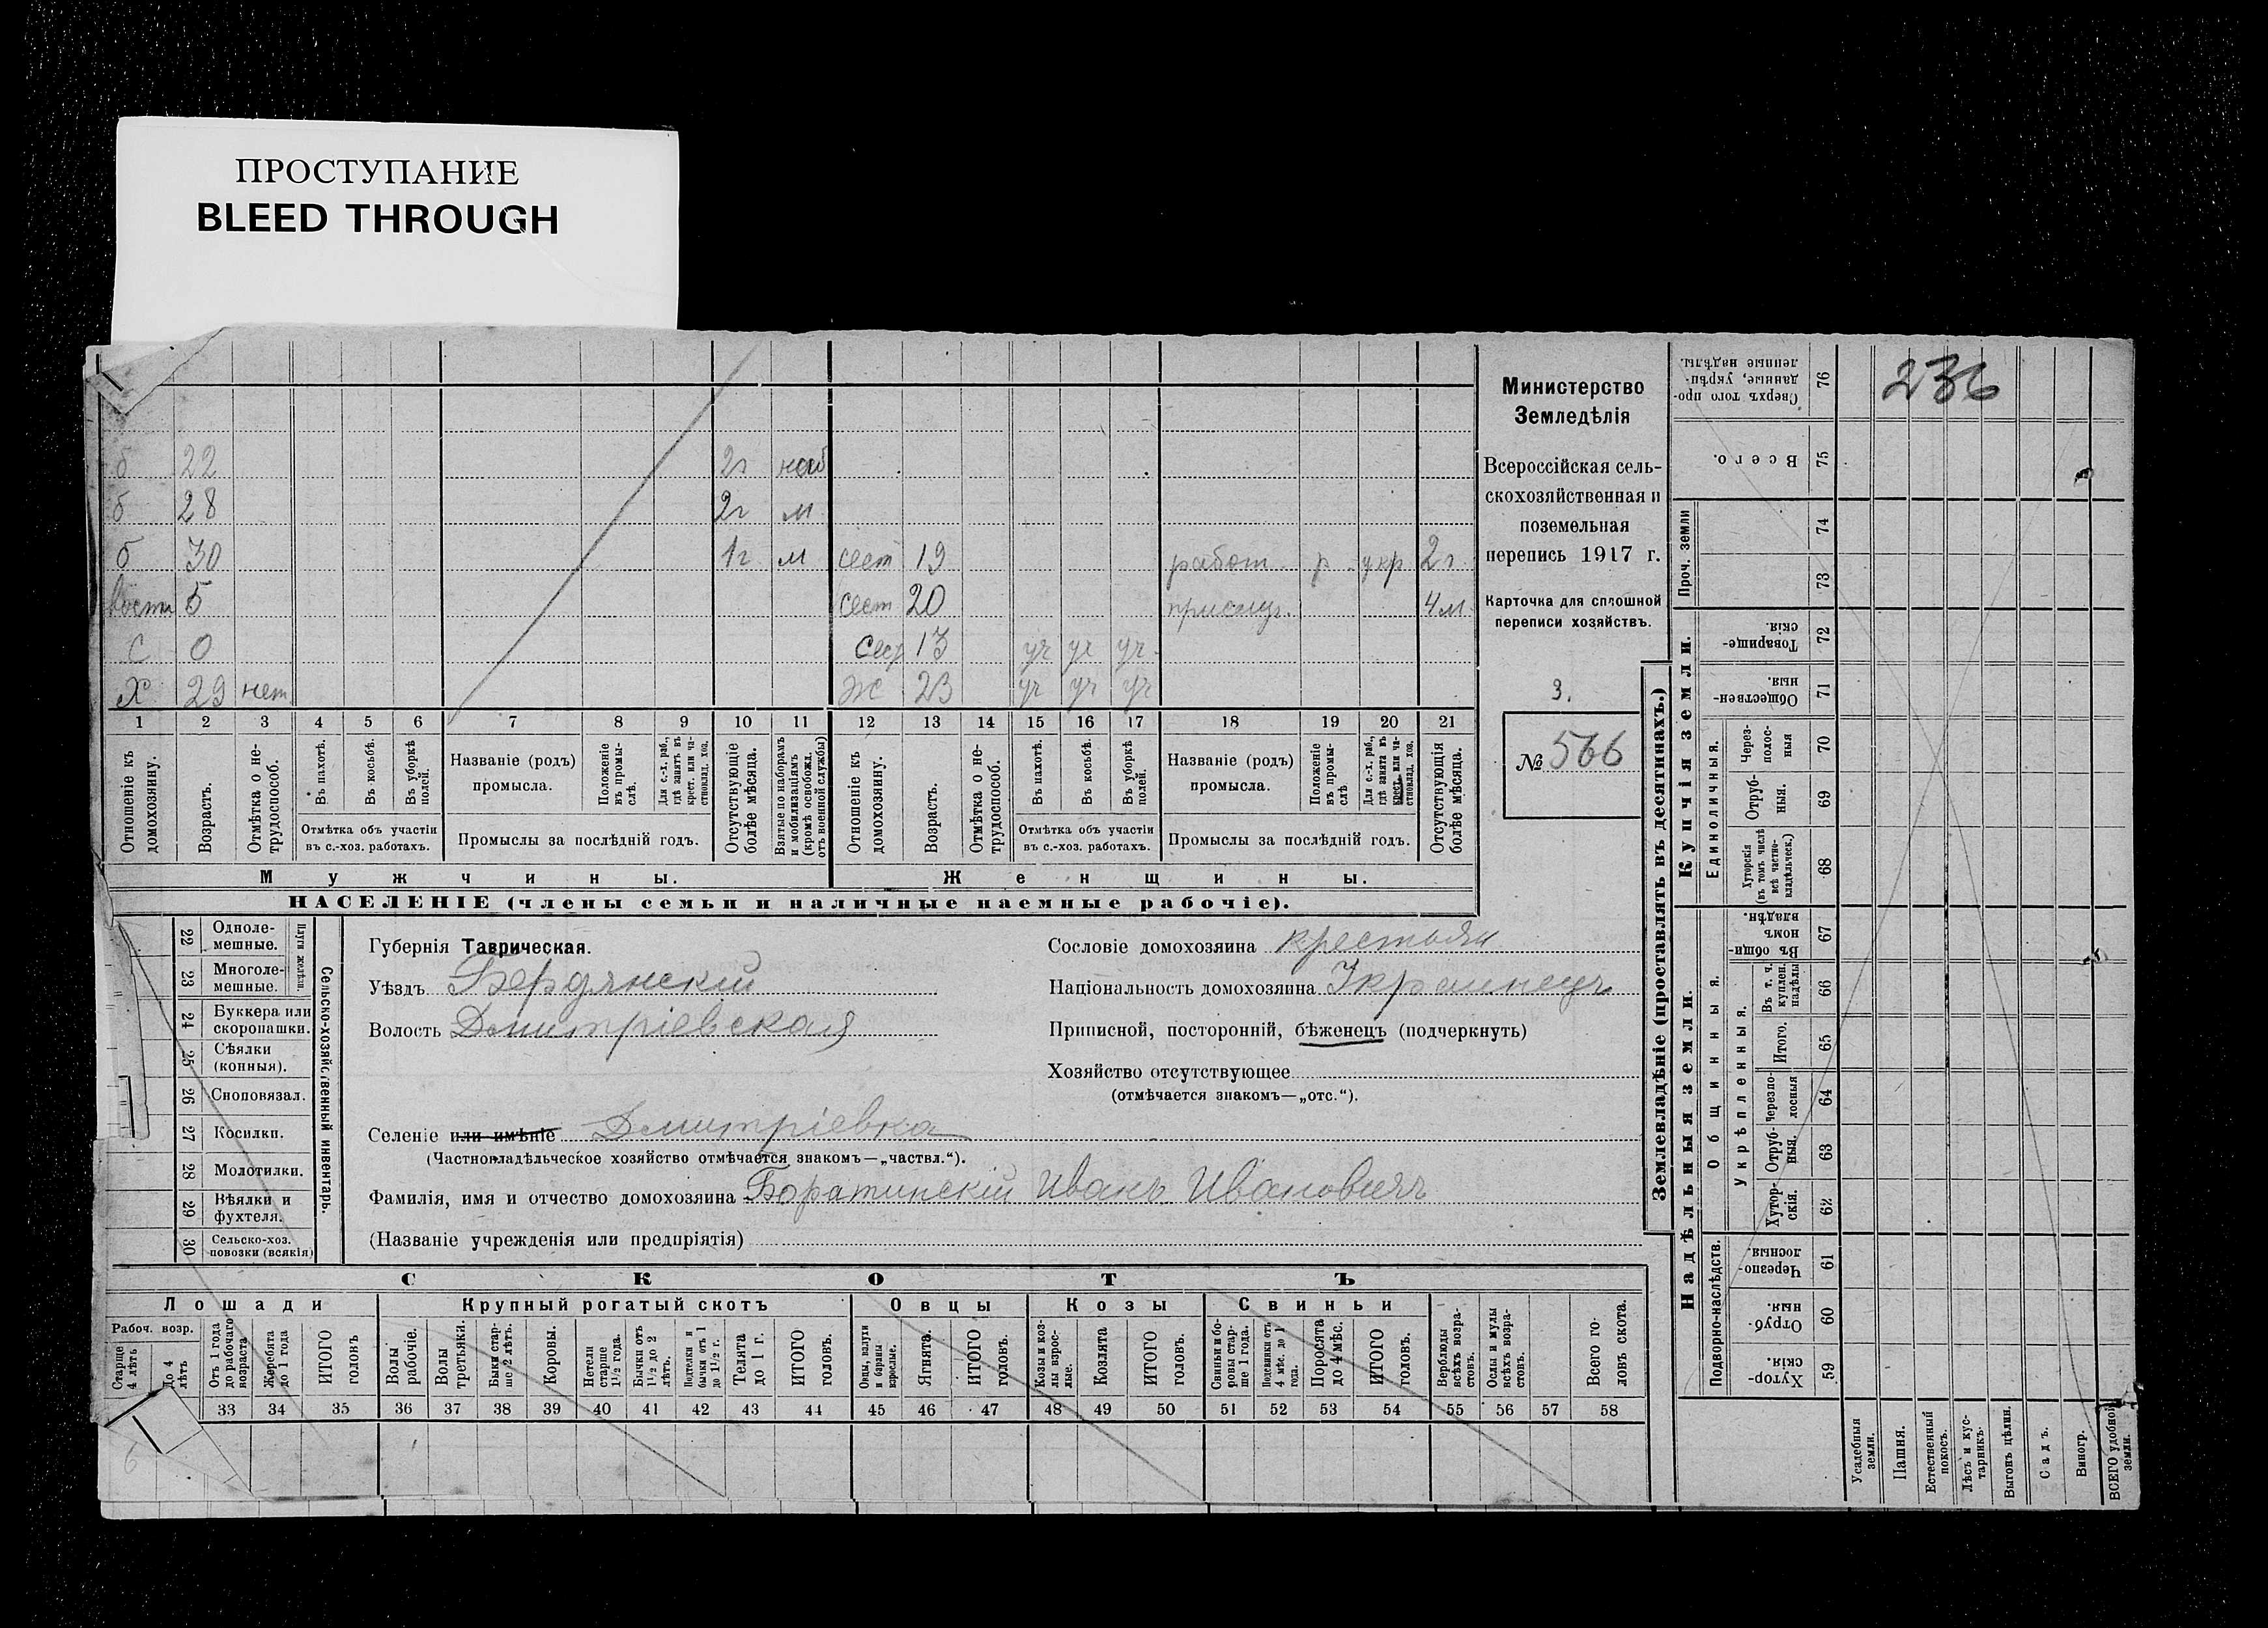 ПРОСТУПАНИЕ
BLEED THROUGH
236
Министерство
Земледѣлія
Всероссійская сель-
скохозяйственная и
поземельная
перепись 1917 г.
Карточка для сплошной
переписи хозяйствъ.
3.
№ 566
б 22 2г
б 28 2г м
б 30 1г м сест 19 работ р укр 2г
5 сест 20 прислуг. 4м
с 0 сест 13 уч уч уч
Х 29 нет ж 23 уч уч уч
1 2 3 4 5 6 7 8 9 10 11 12 13 14 15 16 17 18 19 20 21
Отношеніе къ домохозяину.
Возрастъ.
Отмѣтка о не-трудоспособ.
Въ пахотѣ.
Въ косьбѣ.
Въ уборкѣ полей.
Отмѣтка объ участіи
въ с.-хоз. работахъ.
Названіе (родъ)
промысла.
Положеніе въ промы-слѣ.
Для с.-х. раб., гдѣ занятъ въ крест. или ча-стновлад. хоз.
Промыслы за послѣдній годъ.
Отсутствующіе болѣе мѣсяца.
Взятые по наборамъ и мобилизаціямъ (кромѣ освобожд. отъ военной службы)
Отношеніе къ домохозяину.
Возрастъ.
Отмѣтка о не-трудоспособ.
Въ пахотѣ.
Въ косьбѣ.
Въ уборкѣ полей.
Отмѣтка объ участіи
въ с.-хоз. работахъ.
Названіе (родъ)
промысла.
Положеніе въ промы-слѣ
Для с.-х. раб., гдѣ занята въ крест. или ча-стновлад. хоз.
Промыслы за послѣдній годъ.
Отсутствующія болѣе мѣсяца.
Мужчины. Женщины.
НАСЕЛЕНІЕ (члены семьи и наличные наемные рабочіе).
22 Одноле-мешные.
23 Многоле-мешные.
Плуги желѣзн.
24 Буккера или скоропашки.
25 Сѣялки (конныя).
26 Сноповязал.
27 Косилки.
28 Молотилки.
29 Вѣялки и фухтеля.
30 Сельско-хоз. повозки (всякія)
Сельско-хозяйственный инвентарь.
Губернія Таврическая.
Уѣздъ Бердянскій
Волость Дмитріевская
Сословіе домохозяина крестьян
Національность домохозяина Украинецъ
Приписной, посторонній, бѣженецъ (подчеркнуть)
Хозяйство отсутствующее
(отмѣчается знакомъ—„отс.“).
Селеніе или имѣніе Дмитріевка
(Частновладѣльческое хозяйство отмѣчается знакомъ—„частвл.“).
Фамилія, имя и отчество домохозяина Боратинскій Иванъ Ивановичъ
(Названіе учрежденія или предпріятія)
СКОТЪ
Лошади Крупный рогатый скотъ Овцы Козы Свиньи
Рабоч. возр.
Старше 4 лѣтъ
До 4 лѣтъ
Отъ 1 года до рабочаго возраста
Жеребята до 1 года
ИТОГО головъ
Волы рабочіе.
Волы третьяки.
Быки стар-ше 2 лѣтъ.
Коровы.
Нетели старше 1½ года.
Бычки отъ 1½ до 2 лѣтъ.
Подтелки и бычки отъ 1 до 1½ г.
Телята до 1 г.
ИТОГО головъ.
Овцы, валухи и бараны взрослые.
Ягнята.
ИТОГО головъ.
Козы и коз-лы взрос-лые.
Козлята
ИТОГО головъ.
Свиньи и бо-ровы стар-ше 1 года.
Подсвинки отъ 4 мѣс. до 1 года.
Поросята до 4 мѣс.
ИТОГО головъ.
Верблюды всѣхъ возра-стовъ.
Ослы и мулы всѣхъ возра-стовъ.
Всего го-ловъ скота.
33 34 35 36 37 38 39 40 41 42 43 44 45 46 47 48 49 50 51 52 53 54 55 56 57 58
6
Землевладѣніе (проставлять въ десятинахъ.)
Купчія земли.
Надѣльныя земли.
Сверхъ того про-данные, укрѣп-ленные надѣлы. 76
Всего. 75
Проч. земли
74
73
Товарище-скія. 72
Обществен-ныя. 71
Единоличныя.
Через-полос-ныя 70
Отруб-ныя. 69
Хуторскія (въ томъ числѣ всѣ частно-владѣльческ.) 68
Общинныя.
Въ общин-номъ владѣн. 67
Укрѣпленныя.
Въ т. ч. куплен. надѣлы 66
Итого. 65
Черезпо-лосныя 64
Отруб-ныя. 63
Хутор-скія. 62
Подворно-наслѣдств.
Черезпо-лосныя. 61
Отруб-ныя. 60
Хутор-скія. 59
Усадебныя земли.
Пашня.
Естественный покосъ.
Лѣсъ и кус-тарникъ.
Выгонъ цѣлин.
Садъ.
Виногр.
ВСЕГО удобной земли.